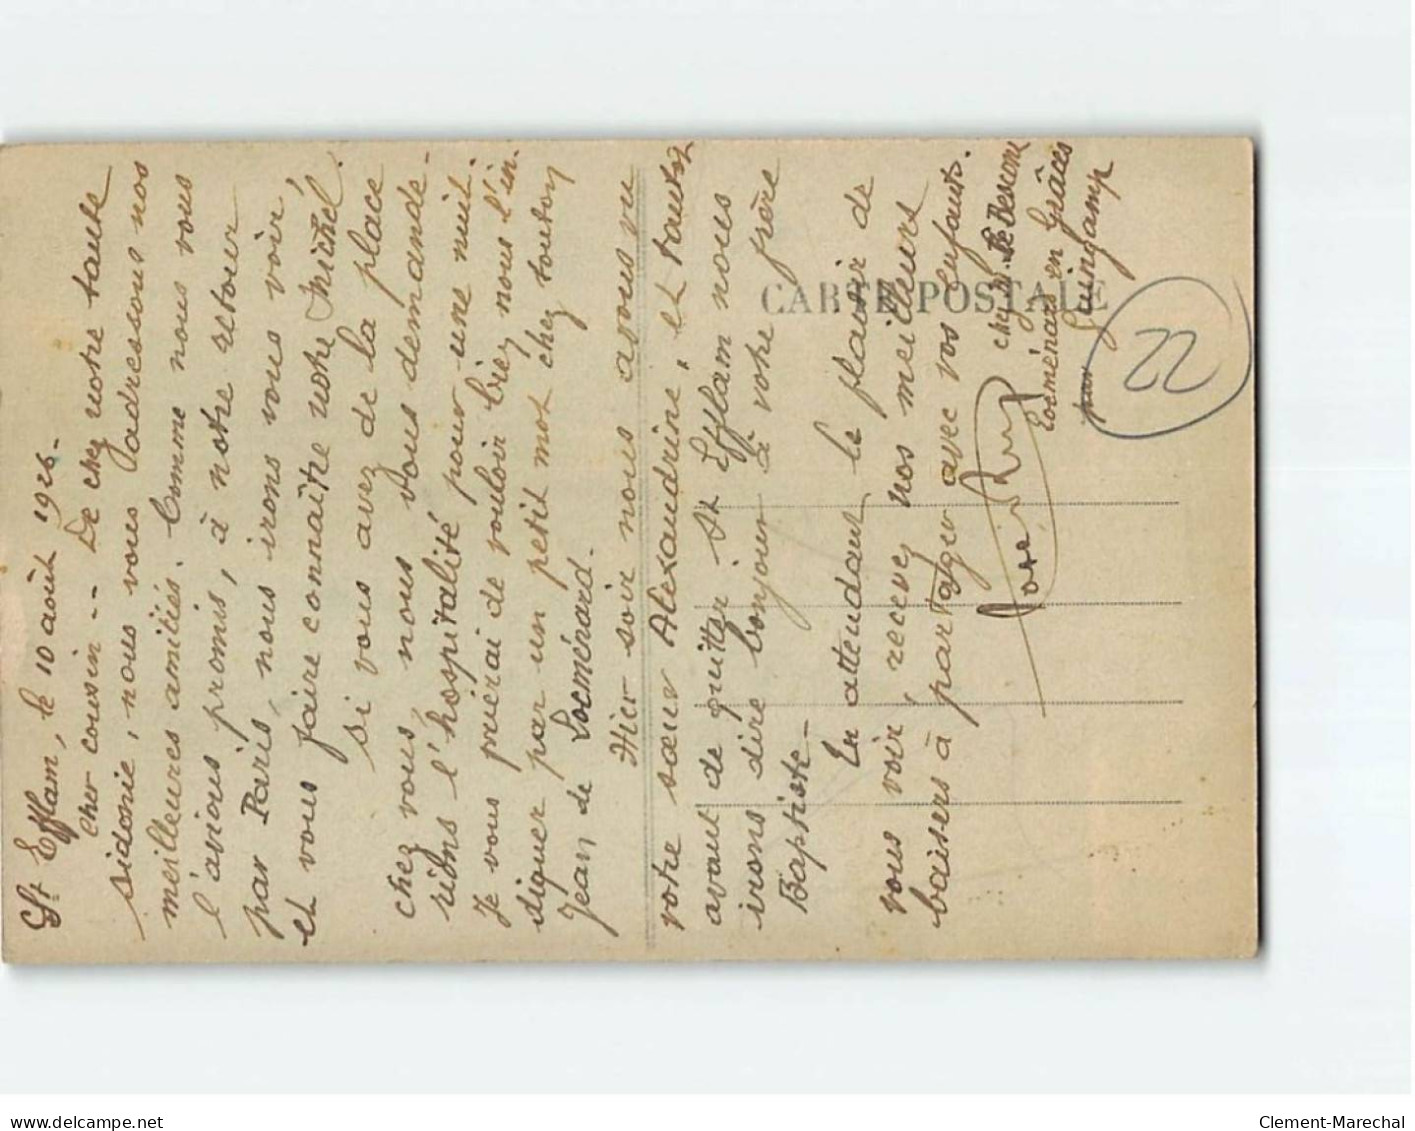 St Efflam, le 10 août 1926.
Cher cousin -- De chez notre tante
Sidonie, nous vous adressons nos
meilleures amitiés. Comme nous vous
l'avions promis, à notre retour
par Paris, nous irons vous voir
et vous faire connaître notre Michel.
Si vous avez de la place
chez vous, nous vous demande-
rions l'hospitalité pour une nuit.
Je vous prierai de vouloir bien nous l'in-
diquer par un petit mot chez tonton
Jean de Locménard.
Hier soir nous avons vu
votre sœur Alexandrine, et tantôt
avant de quitter St Efflam nous
irons dire bonjour à votre père
Baptiste -
En attendant le plaisir de
vous voir, recevez nos meilleurs
baisers à partager avec vos enfants.
chez J. Le Bescond
Locménard en Grâces
par Guingamp
CARTE POSTALE
22
delcampe.net
Clement-Marechal